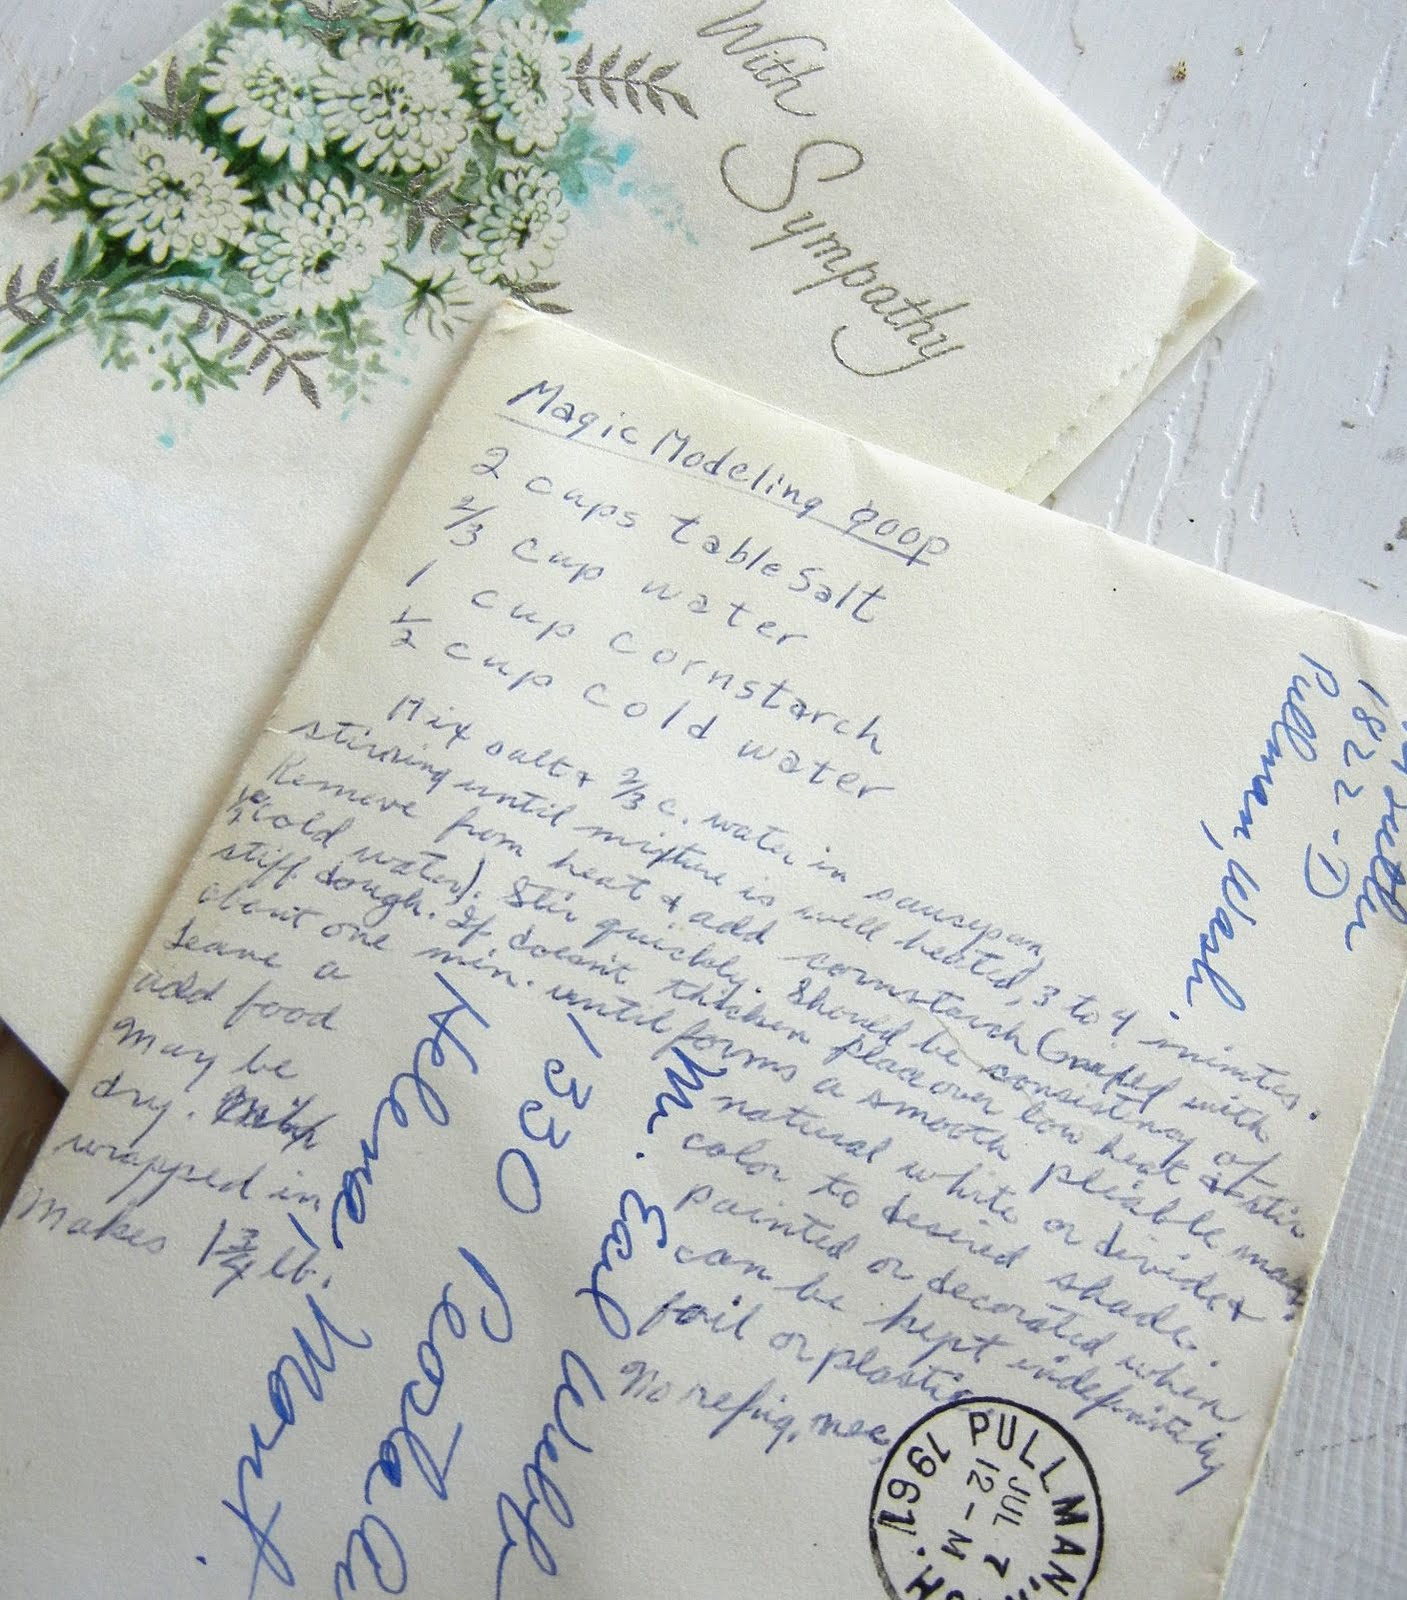 With
Sympathy
Magic Modeling goop
2 cups table salt
2/3 cup water
1 cup cornstarch
1/2 cup cold water
Mix salt + 2/3 c. water in saucepan,
stirring until mixture is well heated, 3 to 4 minutes.
Remove from heat & add cornstarch (mixed with
1/2 c cold water). Stir quickly. Should be consistency of
stiff dough. If doesn't thicken place over low heat & stir
about one min. until forms a smooth pliable mass.
Leave a natural white or divide &
add food color to desired shade.
May be painted or decorated when
dry. can be kept indefinitely
wrapped in foil or plastic
Makes 1 3/4 lb. No refrig. nec.
1822-D
Pullman, Wash.
Mr. Earl
1330
Helena, Mont.
PULLMAN,
JUL 7
12-M
1961